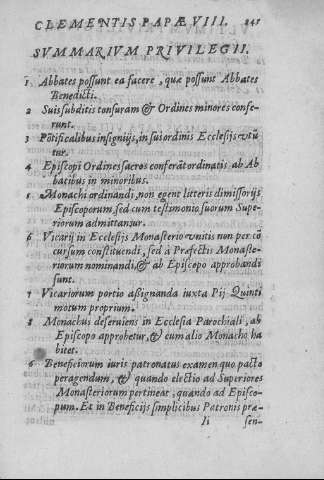 CLEMENTIS PAPÆ VIII. 245
SVMMARIVM PRIVILEGII.
1 Abbates possunt ea facere, quæ possunt Abbates
Benedicti.
2 Suis subditis tonsuram & Ordines minores confe-
runt.
3 Põtificalibus insignijs, in sui ordinis Ecclesijs vtũ
tur.
4 Episcopi Ordines sacros conferãt ordinatis ab Ab
batibus in minoribus.
5 Monachi ordinandi, non egent litteris dimissorijs
Episcoporum, sed cum testimonio suorum Supe-
riorum admittantur.
6 Vicarij in Ecclesijs Monasterio vnitis non per cõ
cursum constituendi, sed à Præfectis Monaste-
riorum nominandi, & ab Episcopo approbandi
sunt.
7 Vicariorum portio assignanda iuxta Pij Quinti
motum proprium.
8 Monachus deseruiens in Ecclesia Parochiali, ab
Episcopo approbetur, & cum alio Monacho ha
bitet.
Beneficiorum iuris patronatus examen quo pacto
peragendum, & quando electio ad Superiores
Monasteriorum pertineat, quando ad Episco-
pum. Et in Beneficijs simplicibus Patronis præ-
Ii sen-